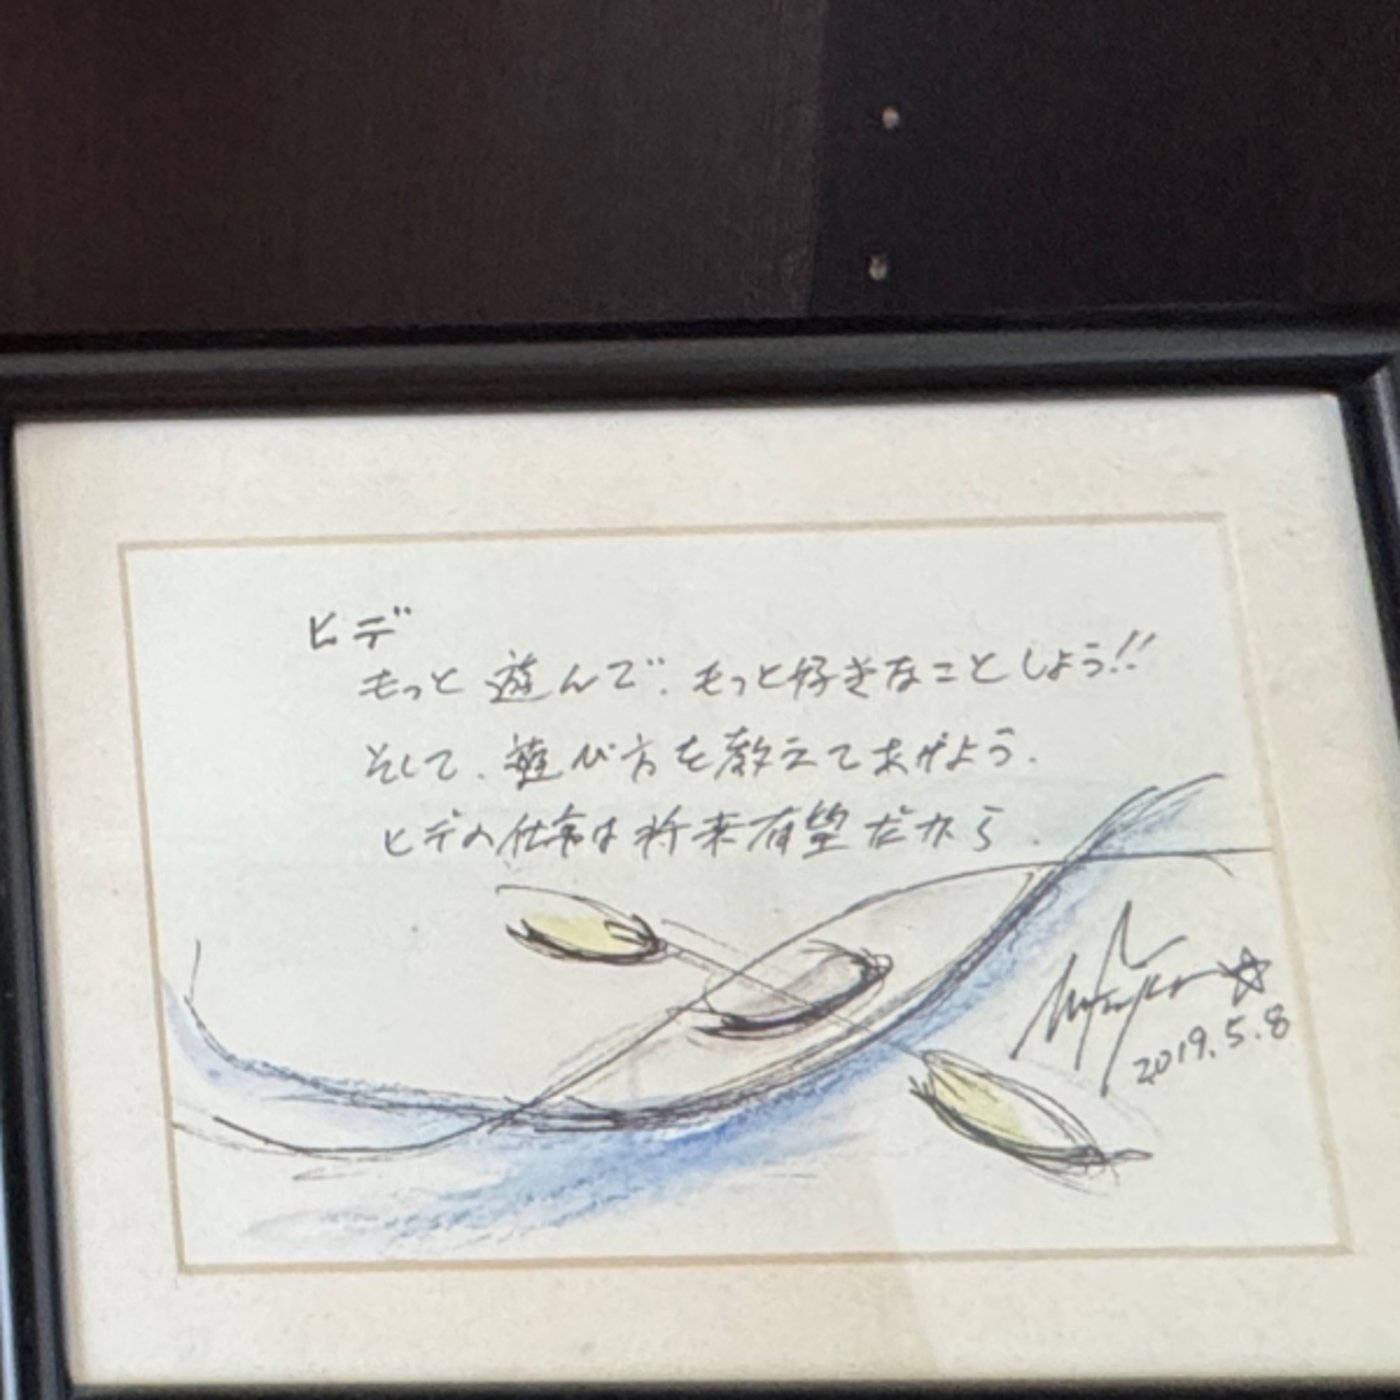 ヒデ
もっと遊んで、もっと好きなことしよう!!
そして、遊び方を教えてあげよう.
ヒデの仕事は将来有望だから.
2019.5.8